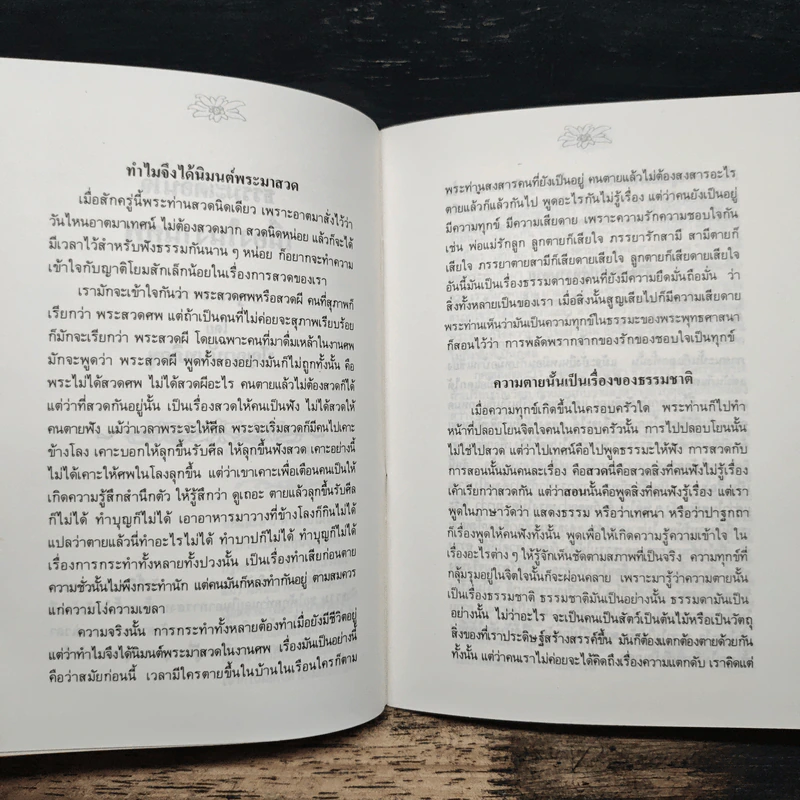 ทำไมจึงได้นิมนต์พระมาสวด
เมื่อสักครู่นี้พระท่านสวดนิดเดียว เพราะอาตมาสั่งไว้ว่า
วันไหนอาตมาเทศน์ ไม่ต้องสวดมาก สวดนิดหน่อย แล้วก็จะได้
มีเวลาไว้สำหรับฟังธรรมกันนาน ๆ หน่อย ก็อยากจะทำความ
เข้าใจกับญาติโยมสักเล็กน้อยในเรื่องการสวดของเรา
เรามักจะเข้าใจกันว่า พระสวดศพหรือสวดผี คนที่สุภาพก็
เรียกว่า พระสวดศพ แต่ถ้าเป็นคนที่ไม่ค่อยจะสุภาพเรียบร้อย
ก็มักจะเรียกว่า พระสวดผี โดยเฉพาะคนที่มาดื่มเหล้าในงานศพ
มักจะพูดว่า พระสวดผี พูดทั้งสองอย่างมันก็ไม่ถูกทั้งนั้น คือ
พระไม่ได้สวดศพ ไม่ได้สวดผีอะไร คนตายแล้วไม่ต้องสวดก็ได้
แต่ว่าที่สวดกันอยู่นั้น เป็นเรื่องสวดให้คนเป็นฟัง ไม่ได้สวดให้
คนตายฟัง แม้ว่าเวลาพระจะให้ศีล พระจะเริ่มสวดก็มีคนไปเคาะ
ข้างโลง เคาะบอกให้ลุกขึ้นรับศีล ให้ลุกขึ้นฟังสวด เคาะอย่างนี้
ไม่ได้เคาะให้ศพในโลงลุกขึ้น แต่ว่าเขาเคาะเพื่อเตือนคนเป็นให้
เกิดความรู้สึกสำนึกตัว ให้รู้สึกว่า ดูเถอะ ตายแล้วลุกขึ้นรับศีล
ก็ไม่ได้ ทำบุญก็ไม่ได้ เอาอาหารมาวางที่ข้างโลงก็กินไม่ได้
แปลว่าตายแล้วนี่ทำอะไรไม่ได้ ทำบาปก็ไม่ได้ ทำบุญก็ไม่ได้
เรื่องการกระทำทั้งหลายทั้งปวงนั้น เป็นเรื่องทำเสียก่อนตาย
ความชั่วนั้นไม่พึงกระทำนัก แต่คนมันก็หลงทำกันอยู่ ตามสมควร
แก่ความโง่ความเขลา
ความจริงนั้น การกระทำทั้งหลายต้องทำเมื่อยังมีชีวิตอยู่
แต่ว่าทำไมจึงได้นิมนต์พระมาสวดในงานศพ เรื่องมันเป็นอย่างนี้
คือว่าสมัยก่อนนี้ เวลามีใครตายขึ้นในบ้านในเรือนใครก็ตาม
พระท่านสงสารคนที่ยังเป็นอยู่ คนตายแล้วไม่ต้องสงสารอะไร
ตายแล้วก็แล้วกันไป พูดอะไรกันไม่รู้เรื่อง แต่ว่าคนยังเป็นอยู่
มีความทุกข์ มีความเสียดาย เพราะความรักความชอบใจกัน
เช่น พ่อแม่รักลูก ลูกตายก็เสียใจ ภรรยารักสามี สามีตายก็
เสียใจ ภรรยาตายสามีก็เสียดายเสียใจ ลูกตายก็เสียดายเสียใจ
อันนี้มันเป็นเรื่องธรรมดาของคนที่ยังมีความยึดมั่นถือมั่น ว่า
สิ่งทั้งหลายเป็นของเรา เมื่อสิ่งนั้นสูญเสียไปก็มีความเสียดาย
พระท่านเห็นว่ามันเป็นความทุกข์ในธรรมะของพระพุทธศาสนา
ก็สอนไว้ว่า การพลัดพรากจากของรักของชอบใจเป็นทุกข์
ความตายนั้นเป็นเรื่องของธรรมชาติ
เมื่อความทุกข์เกิดขึ้นในครอบครัวใด พระท่านก็ไปทำ
หน้าที่ปลอบโยนจิตใจคนในครอบครัวนั้น การไปปลอบโยนนั้น
ไม่ใช่ไปสวด แต่ว่าไปเทศน์คือไปพูดธรรมะให้ฟัง การสวดกับ
การสอนนั้นมันคนละเรื่อง คือสวดนี่คือสวดสิ่งที่คนฟังไม่รู้เรื่อง
เค้าเรียกว่าสวดกัน แต่ว่าสอนนั้นคือพูดสิ่งที่คนฟังรู้เรื่อง แต่เรา
พูดในภาษาวัดว่า แสดงธรรม หรือว่าเทศนา หรือว่าปาฐกถา
ก็เรื่องพูดให้คนฟังทั้งนั้น พูดเพื่อให้เกิดความรู้ความเข้าใจ ใน
เรื่องอะไรต่าง ๆ ให้รู้จักเห็นชัดตามสภาพที่เป็นจริง ความทุกข์ที่
กลุ้มรุมอยู่ในจิตใจนั้นก็จะผ่อนคลาย เพราะมารู้ว่าความตายนั้น
เป็นเรื่องธรรมชาติ ธรรมชาติมันเป็นอย่างนั้น ธรรมดามันเป็น
อย่างนั้น ไม่ว่าอะไร จะเป็นคนเป็นสัตว์เป็นต้นไม้หรือเป็นวัตถุ
สิ่งของที่เราประดิษฐ์สร้างสรรค์ขึ้น มันก็ต้องแตกต้องตายด้วยกัน
ทั้งนั้น แต่ว่าคนเราไม่ค่อยจะได้คิดถึงเรื่องความแตกดับ เราคิดแต่